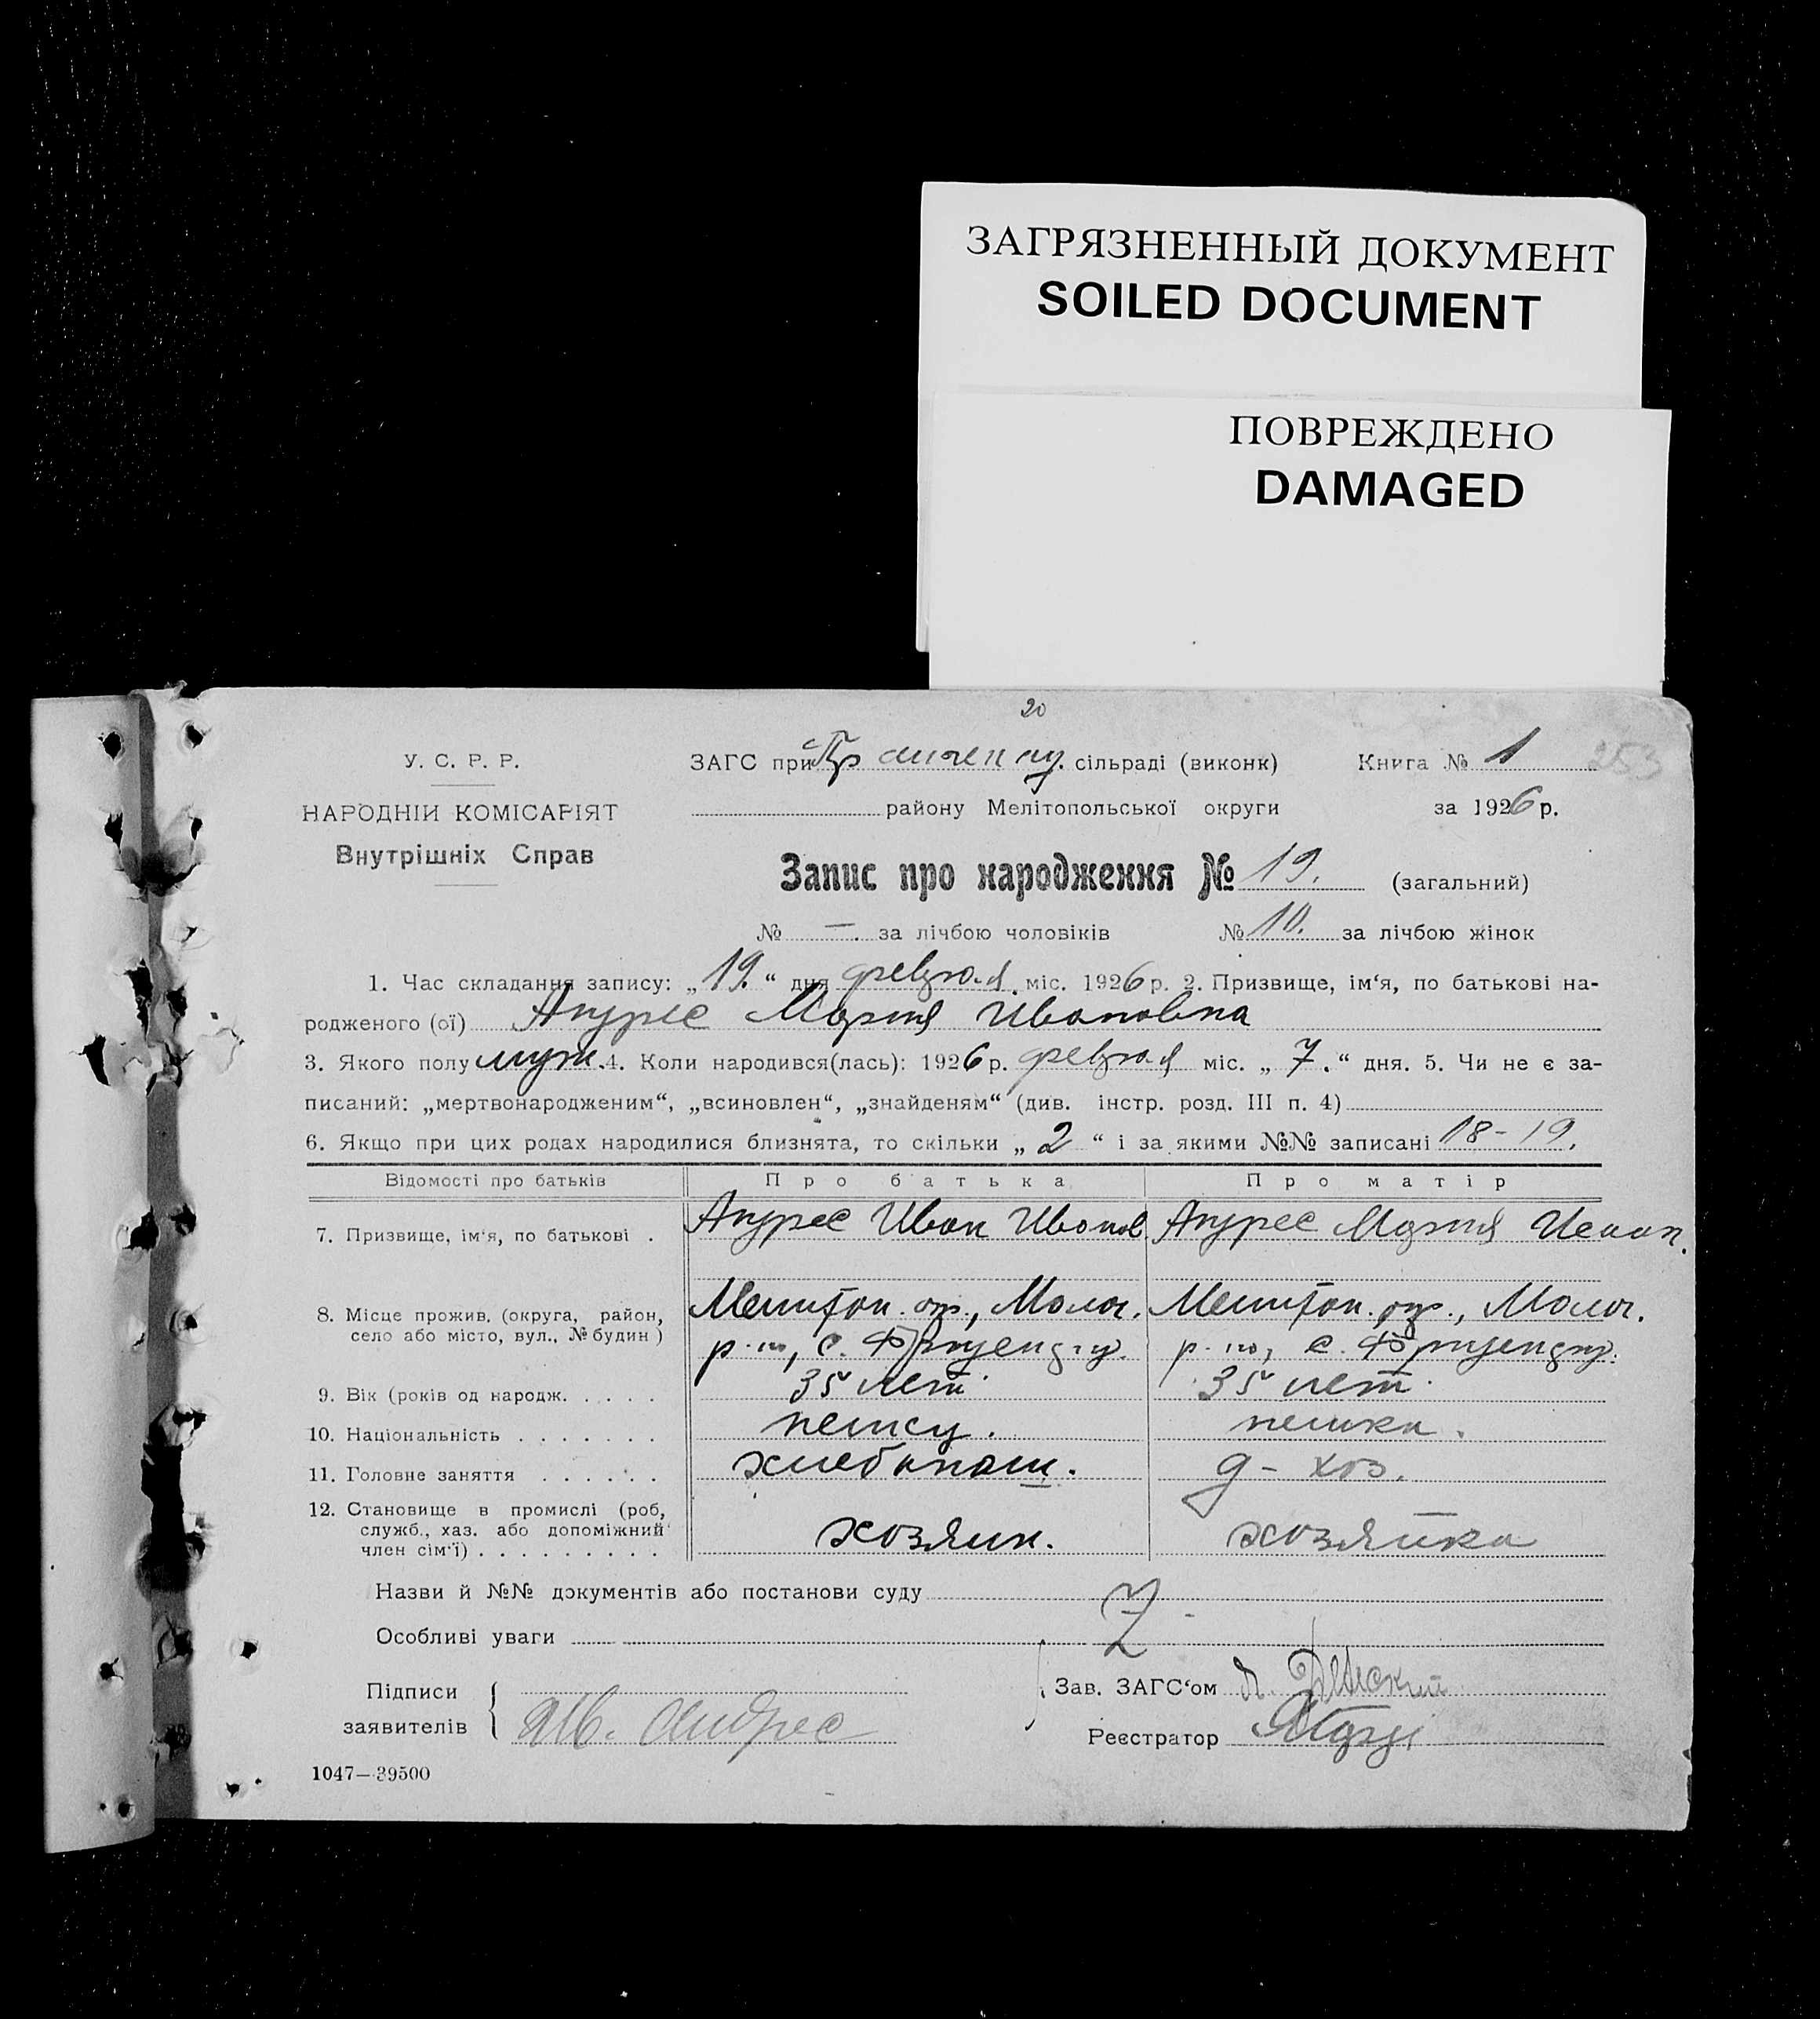 ЗАГРЯЗНЕННЫЙ ДОКУМЕНТ
SOILED DOCUMENT
ПОВРЕЖДЕНО
DAMAGED
20
У. С. Р. Р.
НАРОДНІЙ КОМІСАРІЯТ
Внутрішніх Справ
ЗАГС при сільраді (виконк)
Книга № 1
253
району Мелітопольської округи
за 1926 р.
Запис про народження № 19. (загальний)
№ —. за лічбою чоловіків № 10. за лічбою жінок
1. Час складання запису: „19.“ дня февраля міс. 1926 р. 2. Призвище, ім‘я, по батькові на-
родженого (ої) Андрес Мария Ивановна
3. Якого полу муж. 4. Коли народився(лась): 1926 р. февраля міс. „7.“ дня. 5. Чи не є за-
писаний: „мертвонародженим“, „всиновлен“, „знайденям“ (див. інстр. розд. III п. 4)
6. Якщо при цих родах народилися близнята, то скільки „2“ і за якими №№ записані 18-19.
Відомості про батьків Про батька Про матір
7. Призвище, ім‘я, по батькові . Андрес Иван Иванов Андрес Мария
8. Місце прожив. (округа, район, Мелитоп. окр., Молоч. Мелитоп. окр., Молоч.
село або місто, вул., № будин) р-на, с. р-на, с.
9. Вік (років од народж. . . . . 35 лет. 35 лет.
10. Національність . . . . . . . немец. немка.
11. Головне заняття . . . . . . хлебопаш. д-хоз.
12. Становище в промислі (роб,
служб., хаз. або допоміжний хозяин. хозяйка
член сім‘ї) . . . . . . . . .
Назви й №№ документів або постанови суду
Особливі уваги
Підписи
заявителів Ив. Андрес
Зав. ЗАГС‘ом
Реєстратор
1047—39500